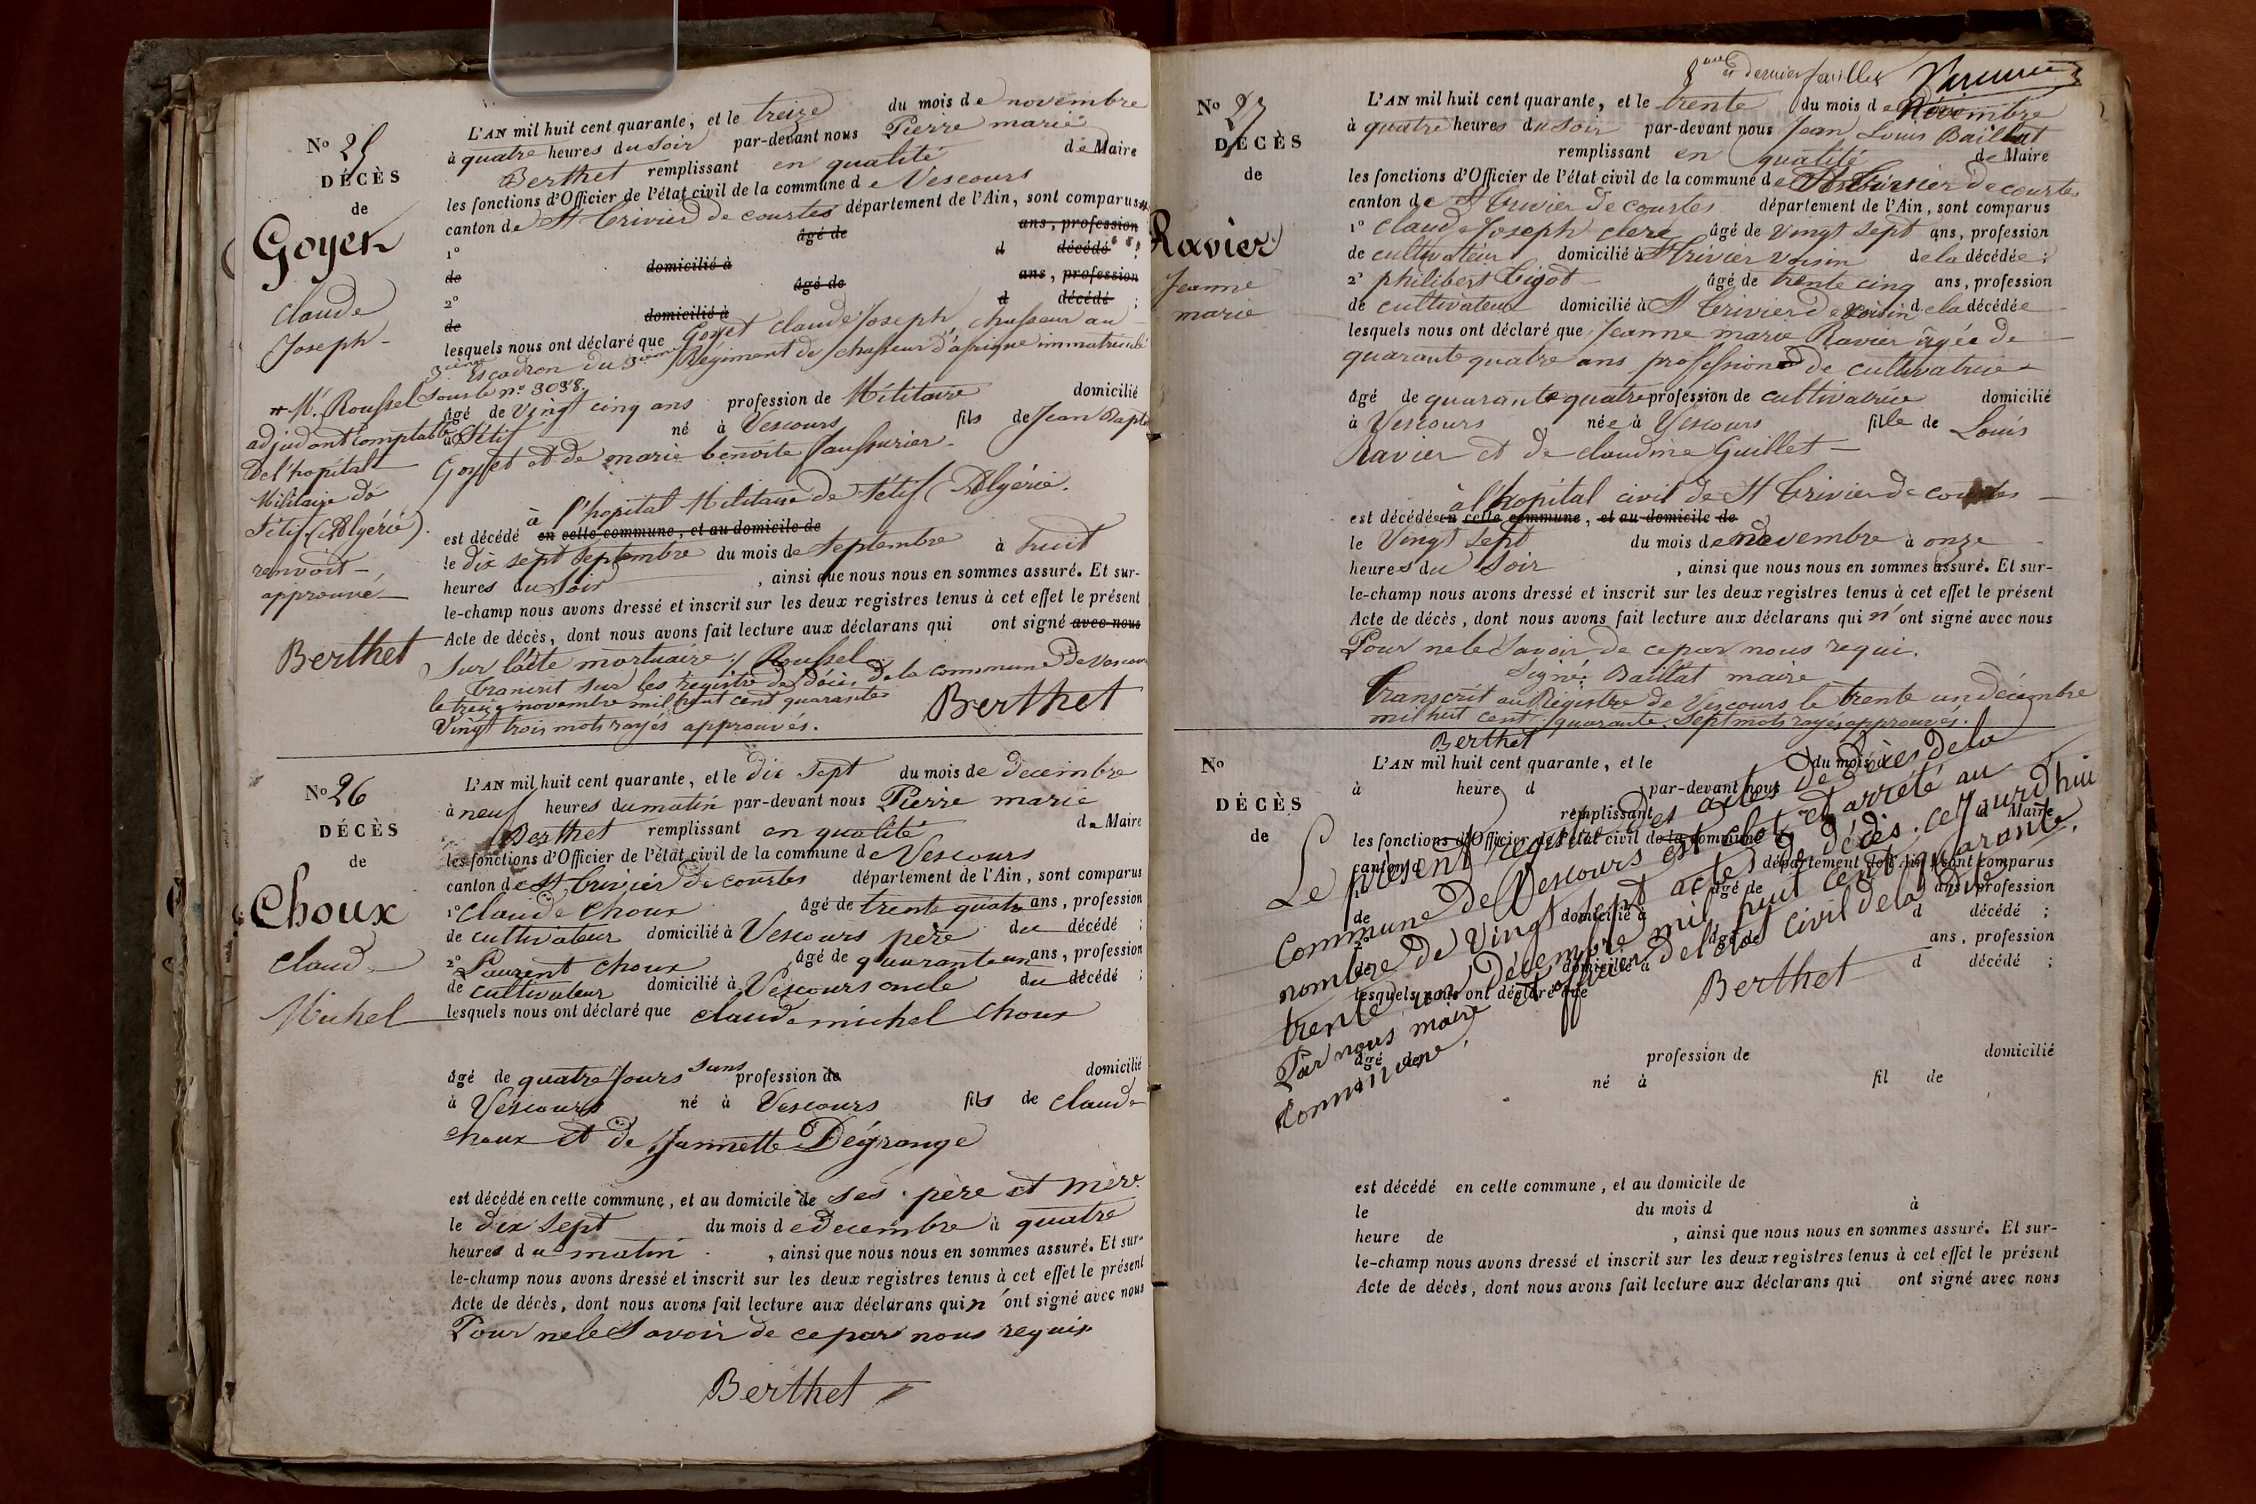 N° 25
DÉCÈS
de
Goyet
Claude
Joseph
L'AN mil huit cent quarante, et le treize du mois de novembre
à quatre heures du soir par-devant nous Pierre marie
Berthet remplissant en qualité de Maire
les fonctions d'Officier de l'état civil de la commune de Vescours
canton de St Trivier de courtes département de l'Ain, sont comparus
1° âgé de ans, profession
de domicilié à d décédé ;
2° âgé de ans, profession
de domicilié à d décédé ;
lesquels nous ont déclaré que Goyet Claude Joseph, chasseur au
3ième Escadron du 3ième Régiment de chasseur d'afrique immatriculé
sous le n° 3038
âgé de vingt cinq ans profession de Militaire domicilié
à Sétif né à Vescours fils de Jean Bapte
Goyet et de marie benoite
à l'hopital Militaire de Sétif (Algérie.
est décédé en cette commune, et au domicile de
le dix sept Septembre du mois de Septembre à huit
heures du Soir , ainsi que nous nous en sommes assuré. Et sur-
le-champ nous avons dressé et inscrit sur les deux registres tenus à cet effet le présent
Acte de décès, dont nous avons fait lecture aux déclarans qui ont signé avec nous
Sur l'acte mortuaire / Roussel
transcrit sur les registre de décès de la commune de Vescours
le treize novembre mil huit cent quarante
Vingt trois mots rayés approuvés.
Berthet
# Mr. Roussel
adjudant comptable
De l'hopital
Militaire de
Sétif (Algérie).
renvoit
approuvé
Berthet
N° 26
DÉCÈS
de
Choux
Claude
Michel
L'AN mil huit cent quarante, et le dix sept du mois de decembre
à neuf heures du matin par-devant nous Pierre marie
Berthet remplissant en qualité de Maire
les fonctions d'Officier de l'état civil de la commune de Vescours
canton de St Trivier de courtes département de l'Ain, sont comparus
1° Claude Choux âgé de trente quatre ans, profession
de cultivateur domicilié à Vescours père du décédé ;
2° Laurent Choux âgé de quarante un ans, profession
de cultivateur domicilié à Vescours oncle du décédé ;
lesquels nous ont déclaré que claude michel Choux
âgé de quatre Jours sans profession de domicilié
à Vescours né à Vescours fils de Claude
choux et de Jannette Degrange
est décédé en cette commune, et au domicile de ses père et mère
le dix sept du mois de decembre à quatre
heures du matin , ainsi que nous nous en sommes assuré. Et sur-
le-champ nous avons dressé et inscrit sur les deux registres tenus à cet effet le présent
Acte de décès, dont nous avons fait lecture aux déclarans qui n'ont signé avec nous
Pour ne le Savoir de ce par nous requis
Berthet
dernier feuillet
N° 27
DÉCÈS
de
Ravier
Jeanne
marie
L'AN mil huit cent quarante, et le trente du mois de Novembre
à quatre heures du soir par-devant nous Jean Louis Baillat
remplissant en qualité de Maire
les fonctions d'Officier de l'état civil de la commune de St Trivier de courtes
canton de St Trivier de courtes département de l'Ain, sont comparus
1° Claude Joseph clerc âgé de vingt sept ans, profession
de cultivateur domicilié à St Trivier voisin de la décédée ;
2° philibert Tigot âgé de trente cinq ans, profession
de cultivateur domicilié à St Trivier de voisin de la décédée
lesquels nous ont déclaré que Jeanne marie Ravier âgée de
quarante quatre ans profession de cultivatrice
âgé de quarante quatre profession de cultivatrice domicilié
à Vescours née à Vescours fille de Louis
Ravier et de claudine Guillet
à l'hopital civil de St Trivier de courtes
est décédée en cette commune, et au domicile de
le Vingt sept du mois de novembre à onze
heures du Soir , ainsi que nous nous en sommes assuré. Et sur-
le-champ nous avons dressé et inscrit sur les deux registres tenus à cet effet le présent
Acte de décès, dont nous avons fait lecture aux déclarans qui n'ont signé avec nous
Pour ne le Savoir de ce par nous requi.
Signé Baillat maire
Transcrit au Régistre de Vescours le trente un décembre
mil huit cent quarante. Sept mots rayés approuvés.
Berthet
N°
DÉCÈS
de
L'AN mil huit cent quarante, et le du mois d
à heure d par-devant nous
remplissant d Maire
les fonctions d'Officier de l'état civil de la commune
canton d département de l'Ain, sont comparus
1° âgé de ans, profession
de domicilié à d décédé ;
2° âgé de ans, profession
de domicilié à d décédé ;
lesquels nous ont déclaré que
Le présent registre des actes de décès de la
Commune de Vescours est clot et arrêté au
nombre de vingt sept actes de décès. ce Jourd'hui
trente un Décembre mil huit cent quarante.
Par nous maire et officier de l'état civil de la dite
Commune.
Berthet
âgé de profession de domicilié
né à fil de
est décédé en cette commune, et au domicile de
le du mois d à
heure de , ainsi que nous nous en sommes assuré. Et sur-
le-champ nous avons dressé et inscrit sur les deux registres tenus à cet effet le présent
Acte de décès, dont nous avons fait lecture aux déclarans qui ont signé avec nous